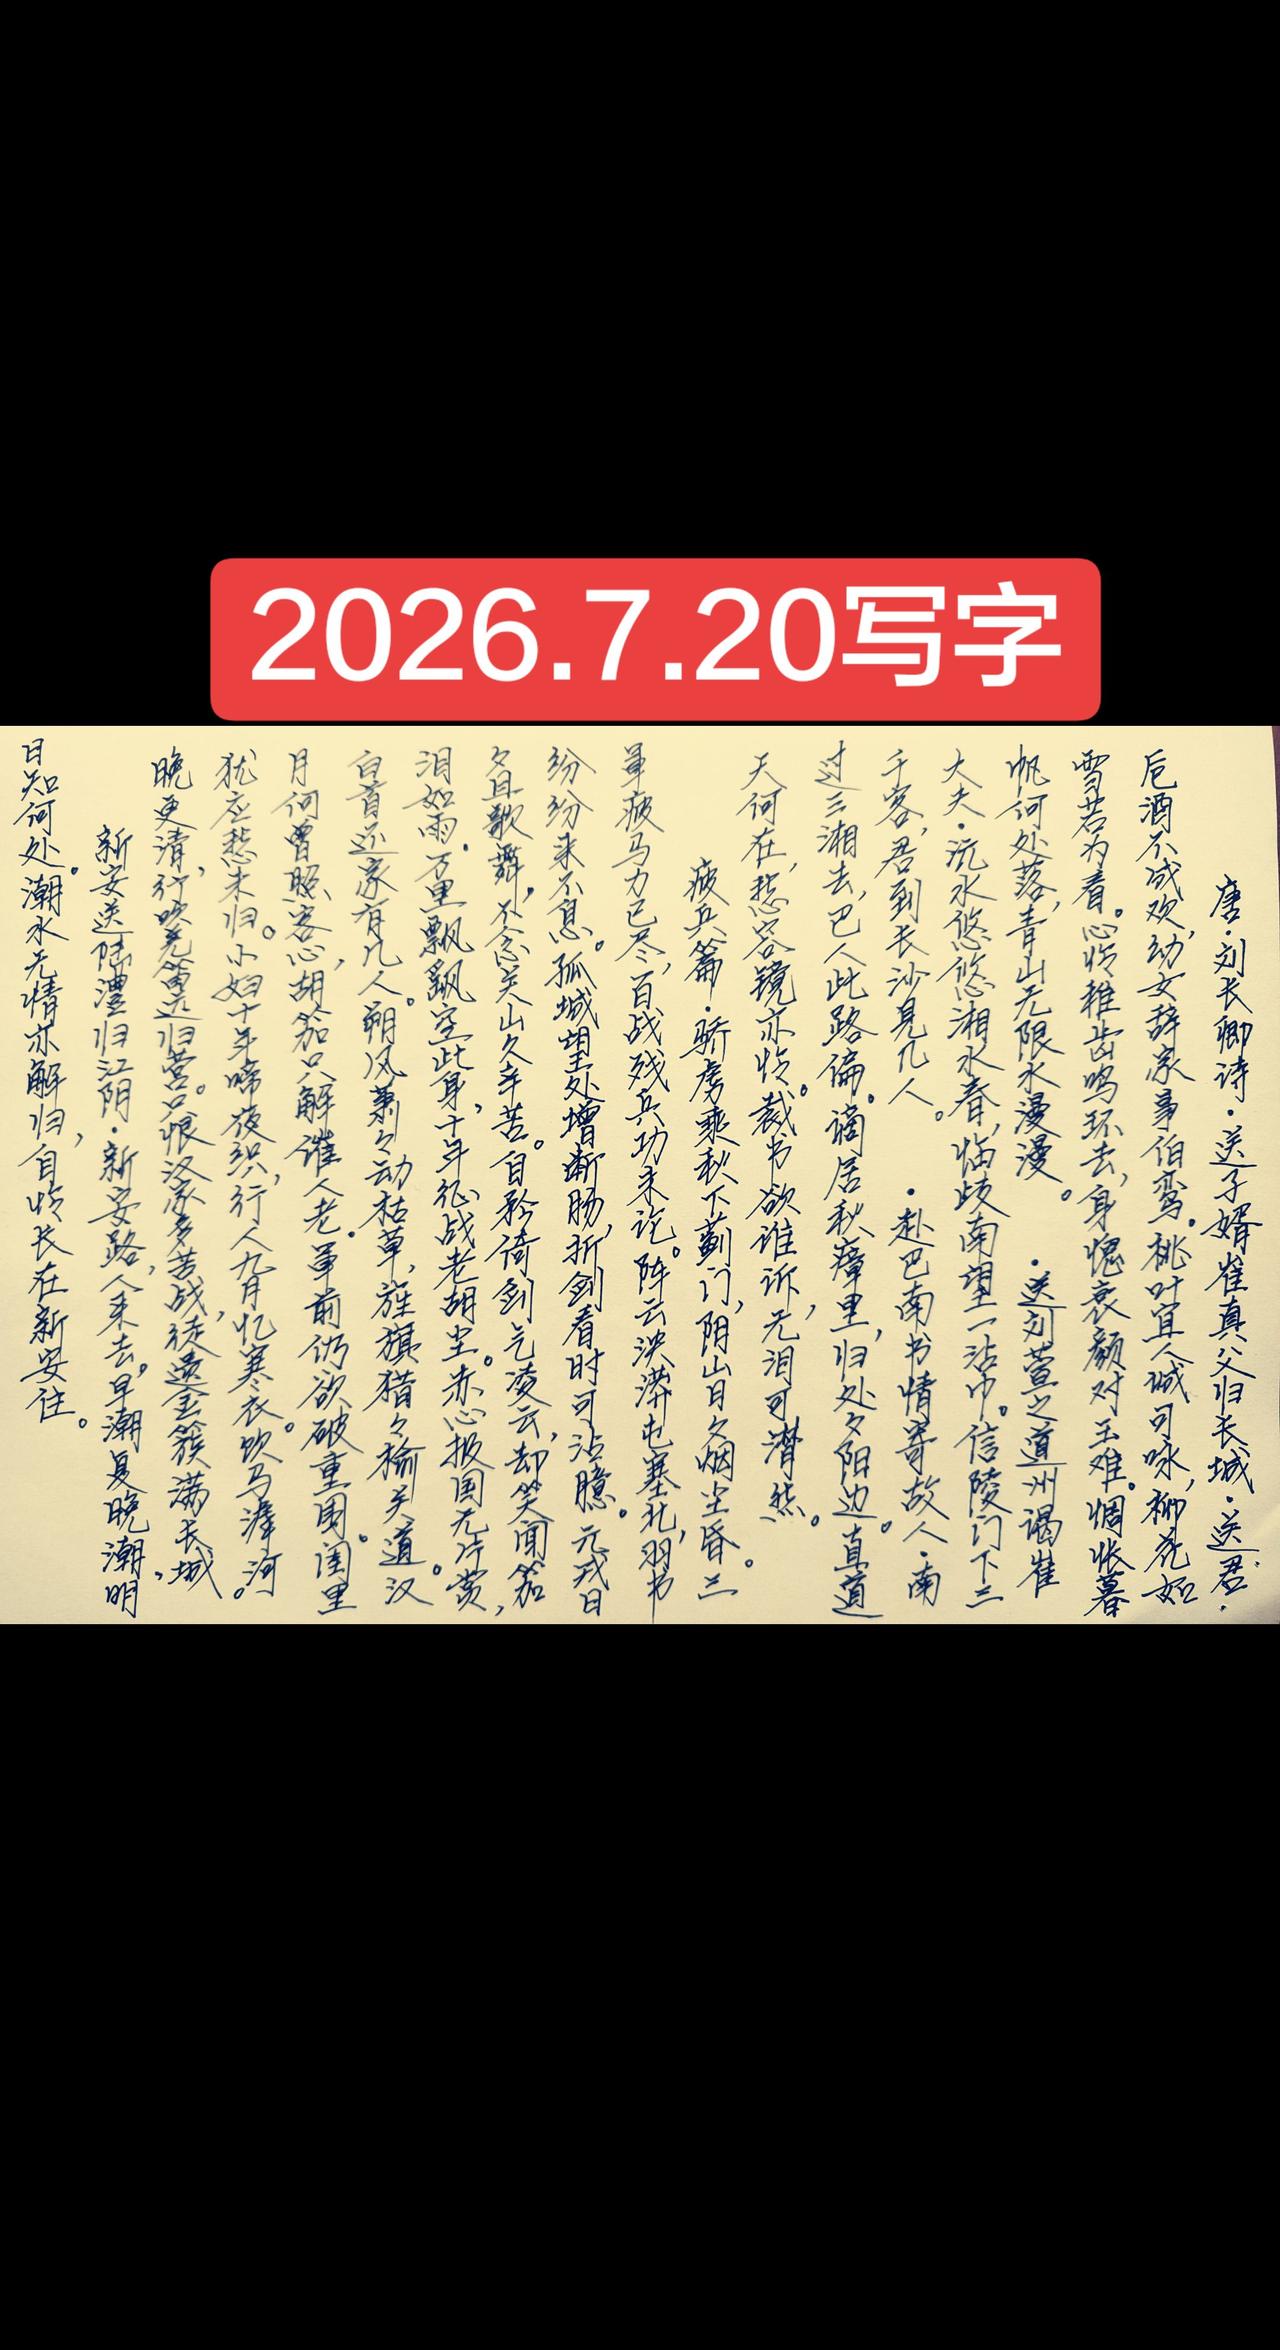 2026.7.20写字
唐·刘长卿诗·送子婿崔真父归长城·送君·
卮酒不成欢,幼女辞家事伯鸾。桃叶宜人诚可咏,柳花如
雪若为看。心怜稚齿鸣环去,身愧衰颜对玉难。惆怅暮
帆何处落,青山无限水漫漫。·送刘萱之道州谒崔
大夫·沅水悠悠湘水春,临歧南望一沾巾。信陵门下三
千客,君到长沙见几人。·赴巴南书情寄故人·南
过三湘去,巴人此路偏。谪居秋瘴里,归处夕阳边。直道
天何在,愁容镜亦怜。裁书欲谁诉,无泪可潸然。
疲兵篇·骄虏乘秋下蓟门,阴山日夕烟尘昏。三
军疲马力已尽,百战残兵功未论。阵云泱漭屯塞北,羽书
纷纷来不息。孤城望处增断肠,折剑看时可沾臆。元戎日
夕且歌舞,不念关山久辛苦。自矜倚剑气凌云,却笑闻笳
泪如雨。万里飘飖空此身,十年征战老胡尘。赤心报国无片赏,
白首还家有几人。朔风萧々动枯草,旌旗猎々榆关道。汉
月何曾照客心,胡笳只解催人老。军前仍欲破重围。闺里
犹应愁未归。小妇十年啼夜织,行人九月忆寒衣。饮马滹河
晚更清,行吹羌笛远归营。只恨汉家多苦战,徒遗金簇满长城。
新安送陆澧归江阴·新安路,人来去。早潮复晚潮,明
日知何处。潮水无情亦解归,自怜长在新安住。